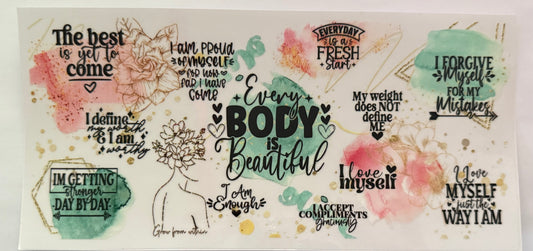 The best
is yet to
come
I am PROUD
of MYSELF
FOR HOW
FAR I HAVE
COME
EVERYDAY
is a
FRESH
Start
I FORGIVE
Myself
FOR MY
Mistakes
Every
BODY
is
Beautiful
My weight
does NOT
define
ME
I define
my worth
& I am
worthy
I love
myself
I Love
MYSELF
just the
WAY I AM
I'M GETTING
stronger
DAY BY DAY
Glow from within
I Am
Enough
I ACCEPT
COMPLIMENTS
graciously